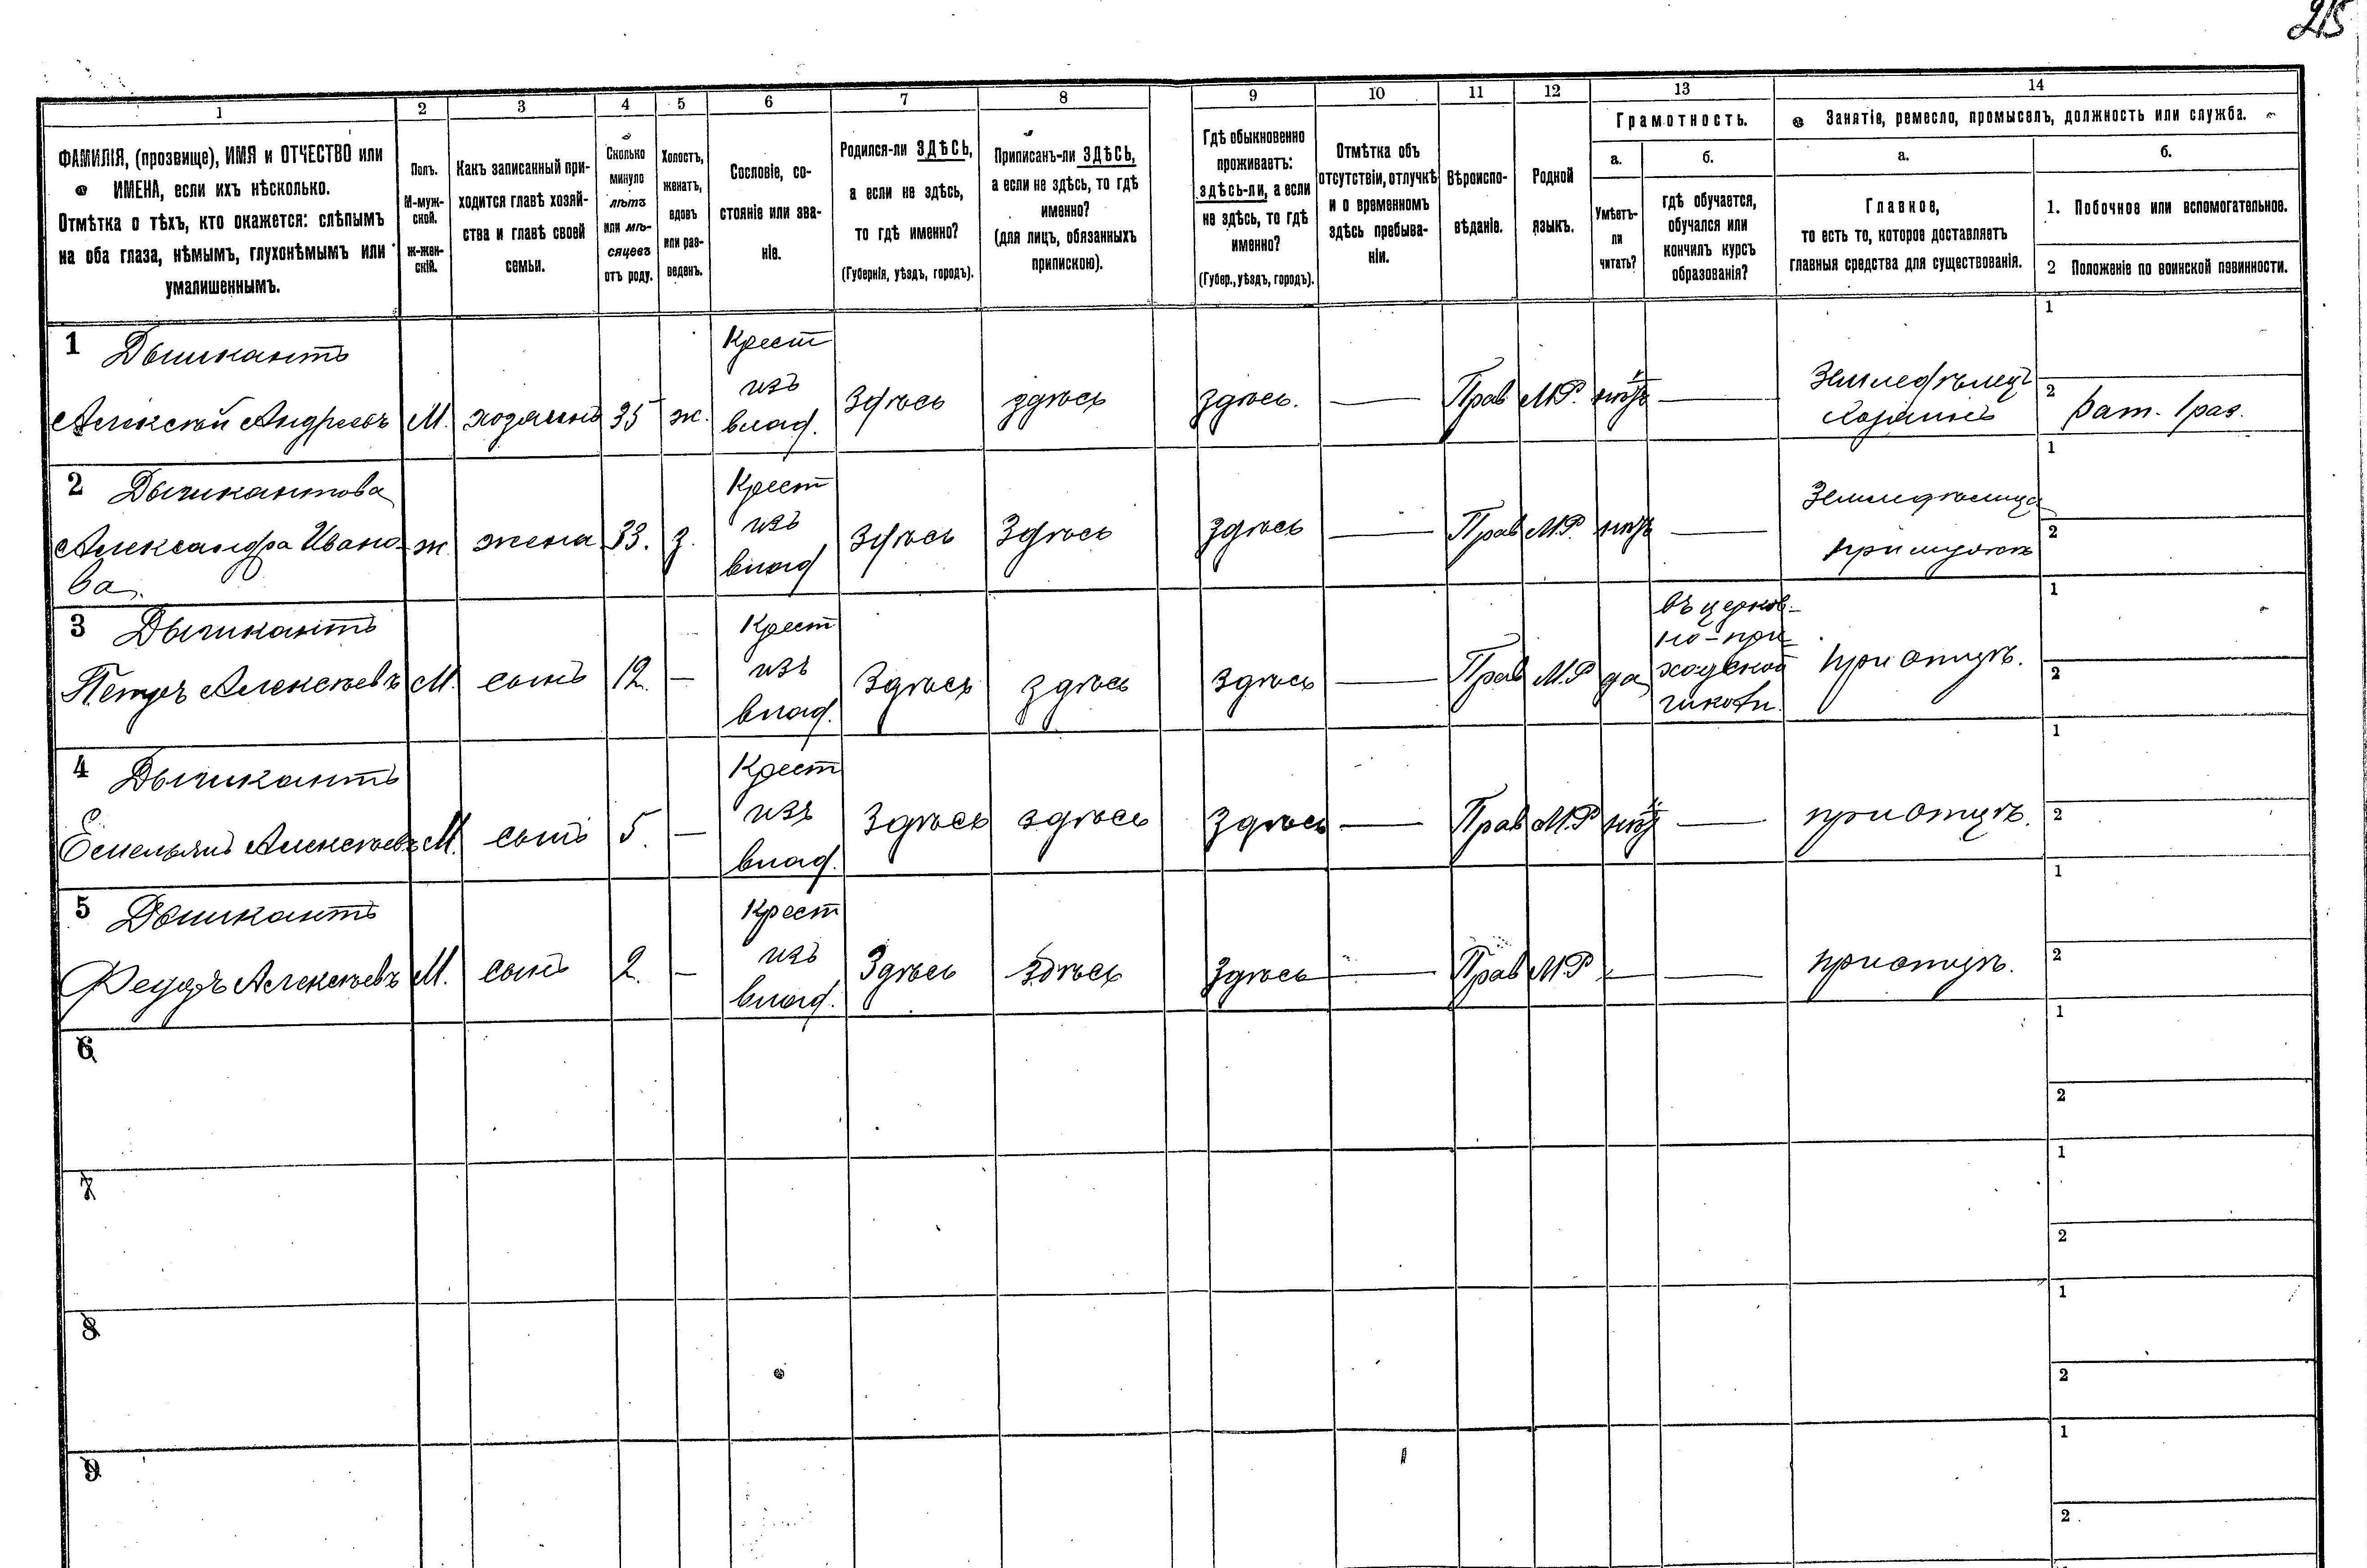 215
1
2
3
4
5
6
7
8
9
10
11
12
13
14
ФАМИЛІЯ, (прозвище), ИМЯ и ОТЧЕСТВО или
ИМЕНА, если ихъ нѣсколько.
Отмѣтка о тѣхъ, кто окажется: слѣпымъ
на оба глаза, нѣмымъ, глухонѣмымъ или
умалишеннымъ.
Полъ.
М-муж-
ской.
ж-жен-
скій.
Какъ записанный при-
ходится главѣ хозяй-
ства и главѣ своей
семьи.
Сколько
минуло
лѣтъ
или мѣ-
сяцевъ
отъ роду.
Холостъ,
женатъ,
вдовъ
или раз-
веденъ.
Сословіе, со-
стояніе или зва-
ніе.
Родился-ли ЗДѢСЬ,
а если не здѣсь,
то гдѣ именно?
(Губернія, уѣздъ, городъ).
Приписанъ-ли ЗДѢСЬ,
а если не здѣсь, то гдѣ
именно?
(для лицъ, обязанныхъ
припискою).
Гдѣ обыкновенно
проживаетъ:
здѣсь-ли, а если
не здѣсь, то гдѣ
именно?
(Губер., уѣздъ, городъ).
Отмѣтка объ
отсутствіи, отлучкѣ
и о временномъ
здѣсь пребыва-
ніи.
Вѣроиспо-
вѣданіе.
Родной
языкъ.
Грамотность.
а.
Умѣетъ-
ли
читать?
б.
гдѣ обучается,
обучался или
кончилъ курсъ
образованія?
Занятіе, ремесло, промыселъ, должность или служба.
а.
Главное,
то есть то, которое доставляетъ
главныя средства для существованія.
б.
1. Побочное или вспомогательное.
2 Положеніе по воинской повинности.
1 Дышкантъ
Алексѣй Андреевъ М. хозяинъ 35 ж. Крест изъ влад. Здѣсь здѣсь здѣсь. — Прав М.Р. нѣтъ — Земледѣлецъ Хозяинъ 1
2 Рат. 1 раз.
2 Дышкантова
Александра Ивано-
ва. ж. жена 33. з. Крест изъ влад Здѣсь Здѣсь здѣсь — Прав М.Р. нѣтъ — 1
2
3 Дышкантъ
Петръ Алексѣевъ М. сынъ 12. — Крест изъ влад. Здѣсь здѣсь здѣсь — Прав М.Р да въ церков-
но-при
ходской
школѣ. при отцѣ. 1
2
4 Дышкантъ
Емельянъ Алексѣевъ М. сынъ 5. — Крест изъ влад. Здѣсь здѣсь здѣсь — Прав М.Р нѣтъ — при отцѣ. 1
2
5 Дышкантъ
Федоръ Алексѣевъ М. сынъ 2. — Крест изъ влад. Здѣсь Здѣсь здѣсь — Прав М.Р — — при отцѣ. 1
2
6
1
2
7
1
2
8
1
2
9
1
2